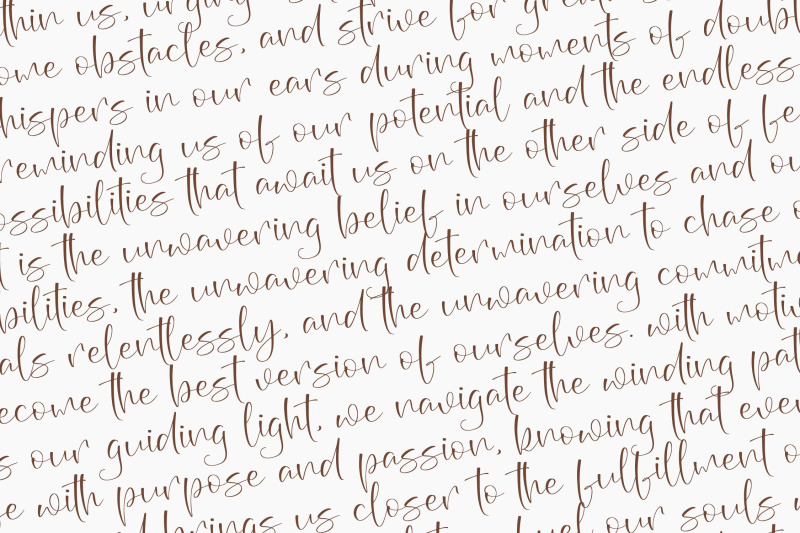 thin us, urging
ome obstacles, and strive for
hispers in our ears during moments of doubt
reminding us of our potential and the endless
ossibilities that await us on the other side of fe
t is the unwavering belief in ourselves and ou
bilities, the unwavering determination to chase o
als relentlessly, and the unwavering commitme
ecome the best version of ourselves. with motiv
s our guiding light, we navigate the winding pat
e with purpose and passion, knowing that ever
brings us closer to the fulfillment o
our souls